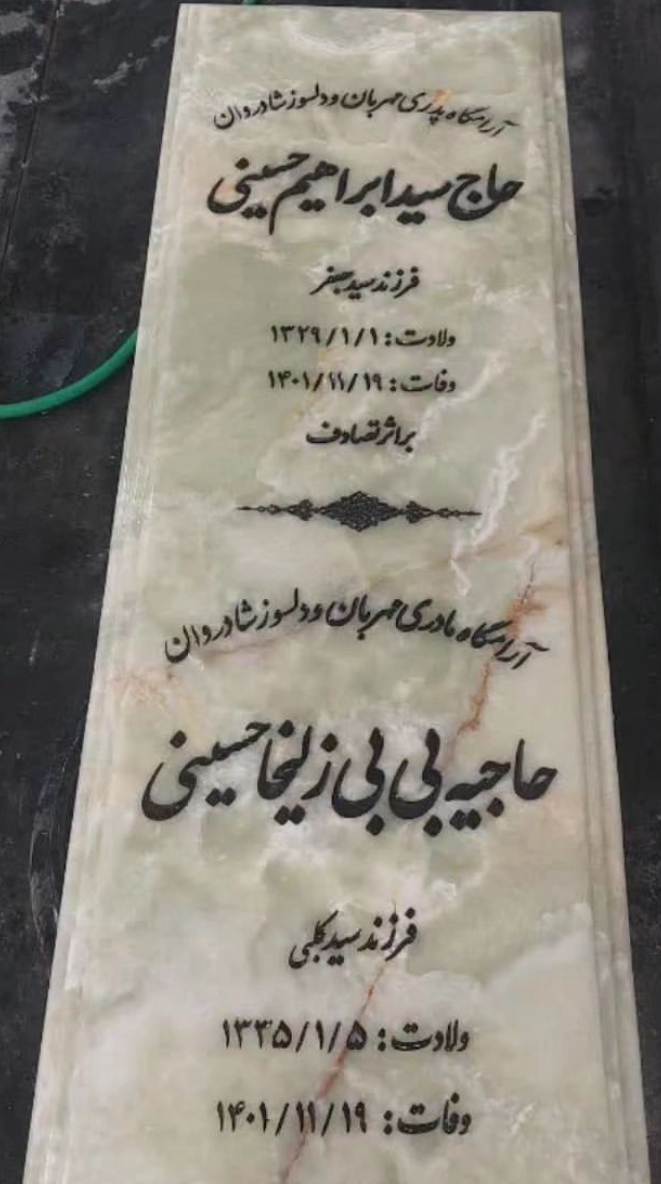 آرامگاه پدری مهربان و دلسوز شادروان
حاج سید ابراهیم حسینی
فرزند سید جعفر
ولادت: ۱۳۲۹/۱/۱
وفات: ۱۴۰۱/۱۱/۱۹
براثر تصادف
آرامگاه مادری مهربان و دلسوز شادروان
حاجیه بی بی زلیخا حسینی
فرزند سید کلبی
ولادت: ۱۳۳۵/۱/۵
وفات: ۱۴۰۱/۱۱/۱۹